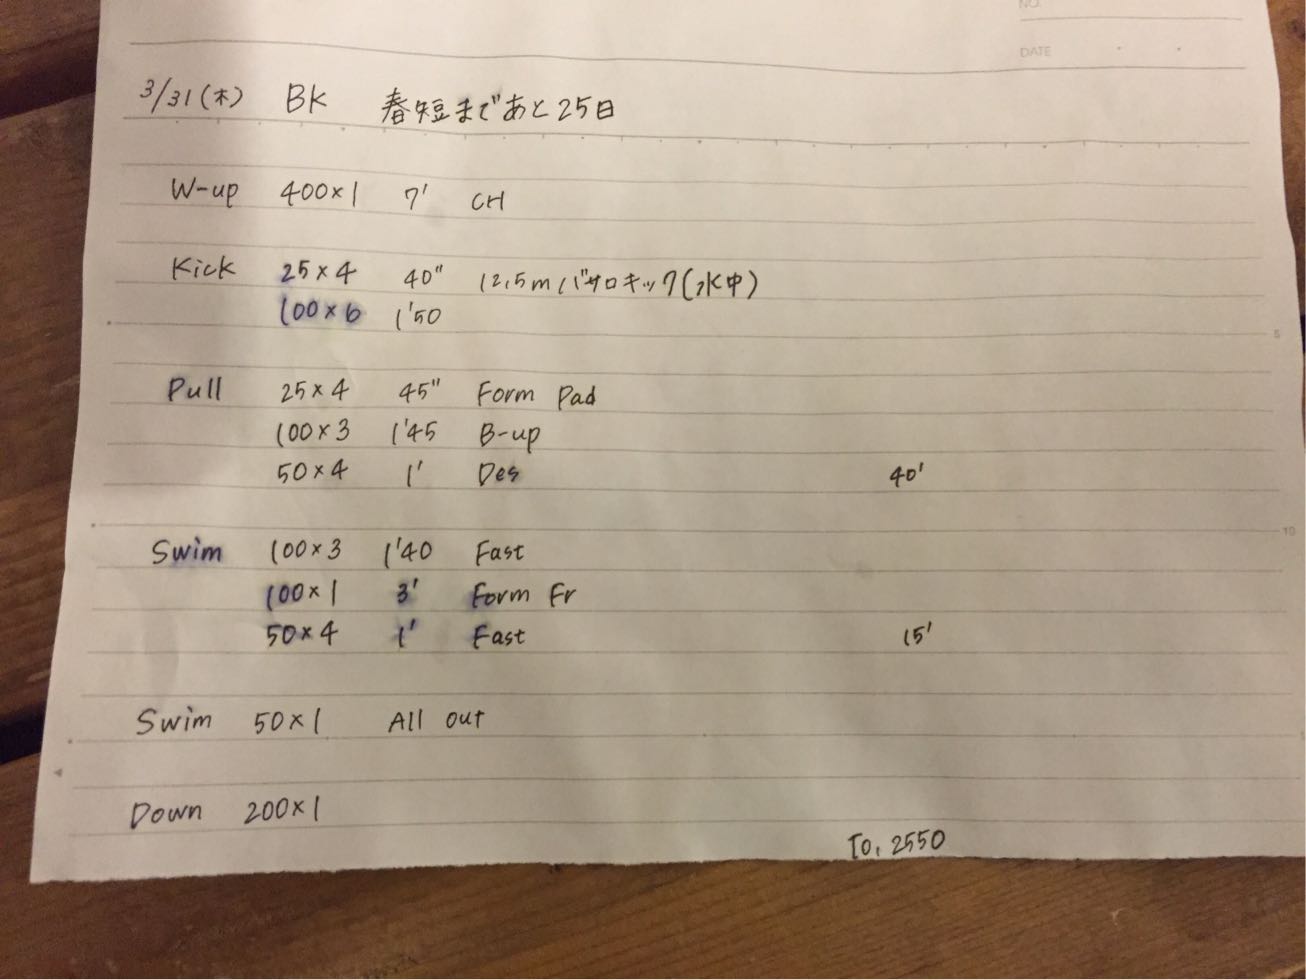 NO.
DATE
3/31(木) BK 春短まであと25日
W-up 400×1 7' CH
Kick 25×4 40" 12.5mバサロキック(水中)
100×6 1'50
5
Pull 25×4 45" Form Pad
100×3 1'45 B-up
50×4 1' Des 40'
10
Swim 100×3 1'40 Fast
100×1 3' Form Fr
50×4 1' Fast 15'
Swim 50×1 All out
Down 200×1
To. 2550